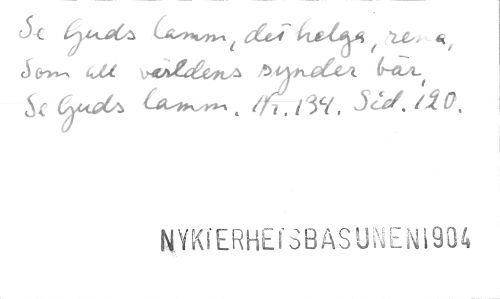 Se Guds lamm, det helga, rena,
Som all världens synder bär,
Se Guds lamm. Nr. 134. Sid. 120.
NYKTERHETSBASUNEN 1904